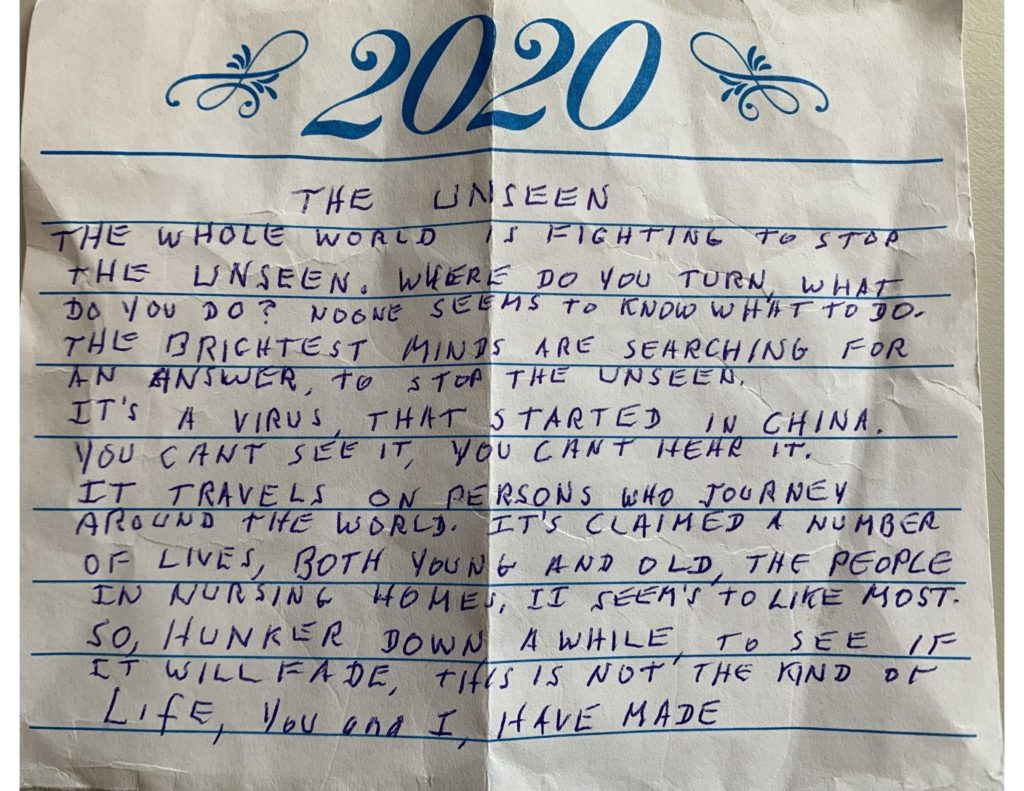 2020
THE UNSEEN
THE WHOLE WORLD IS FIGHTING TO STOP
THE UNSEEN. WHERE DO YOU TURN, WHAT
DO YOU DO? NOONE SEEMS TO KNOW WHAT TO DO.
THE BRIGHTEST MINDS ARE SEARCHING FOR
AN ANSWER, TO STOP THE UNSEEN.
IT'S A VIRUS, THAT STARTED IN CHINA.
YOU CANT SEE IT, YOU CANT HEAR IT.
IT TRAVELS ON PERSONS WHO JOURNEY
AROUND THE WORLD. IT'S CLAIMED A NUMBER
OF LIVES, BOTH YOUNG AND OLD, THE PEOPLE
IN NURSING HOMES, IT SEEM'S TO LIKE MOST.
SO, HUNKER DOWN A WHILE, TO SEE IF
IT WILL FADE, THIS IS NOT THE KIND OF
LifE, YOU and I, HAVE MADE